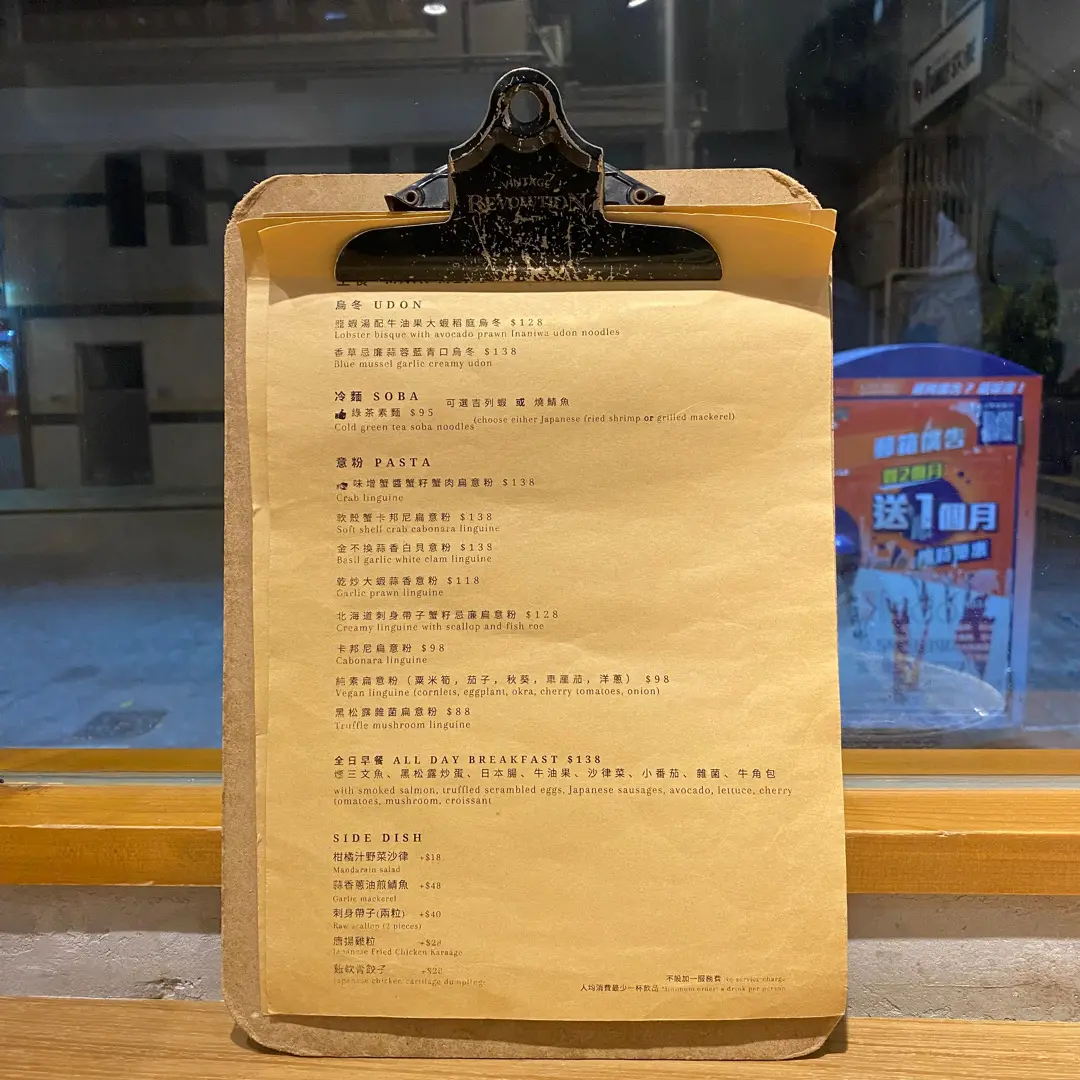 VINTAGE
REVOLUTION
烏冬 UDON
龍蝦湯配牛油果大蝦稻庭烏冬 $128
Lobster bisque with avocado prawn Inaniwa udon noodles
香草忌廉蒜蓉藍青口烏冬 $138
Blue mussel garlic creamy udon
冷麵 SOBA
可選吉列蝦 或 燒鯖魚
綠茶素麵 $95
(choose either Japanese fried shrimp or grilled mackerel)
Cold green tea soba noodles
意粉 PASTA
味增蟹醬蟹籽蟹肉扁意粉 $138
Crab linguine
軟殼蟹卡邦尼扁意粉 $138
Soft shell crab cabonara linguine
金不換蒜香白貝意粉 $138
Basil garlic white clam linguine
乾炒大蝦蒜香意粉 $118
Garlic prawn linguine
北海道刺身帶子蟹籽忌廉扁意粉 $128
Creamy linguine with scallop and fish roe
卡邦尼扁意粉 $98
Cabonara linguine
純素扁意粉（粟米筍，茄子，秋葵，車厘茄，洋蔥） $98
Vegan linguine (cornlets, eggplant, okra, cherry tomatoes, onion)
黑松露雜菌扁意粉 $88
Truffle mushroom linguine
全日早餐 ALL DAY BREAKFAST $138
煙三文魚、黑松露炒蛋、日本腸、牛油果、沙律菜、小番茄、雜菌、牛角包
with smoked salmon, truffled scrambled eggs, Japanese sausages, avocado, lettuce, cherry
tomatoes, mushroom, croissant
SIDE DISH
柑橘汁野菜沙律 +$18
Mandarain salad
蒜香蔥油煎鯖魚 +$48
Garlic mackerel
刺身帶子(兩粒) +$40
Raw scallop (2 pieces)
唐揚雞粒 +$28
Japanese Fried Chicken Karaage
雞軟骨餃子 +$28
Japanese chicken cartilage dumplings
不設加一服務費 No service charge
人均消費最少一杯飲品 *Minimum order: a drink per person
送1個月